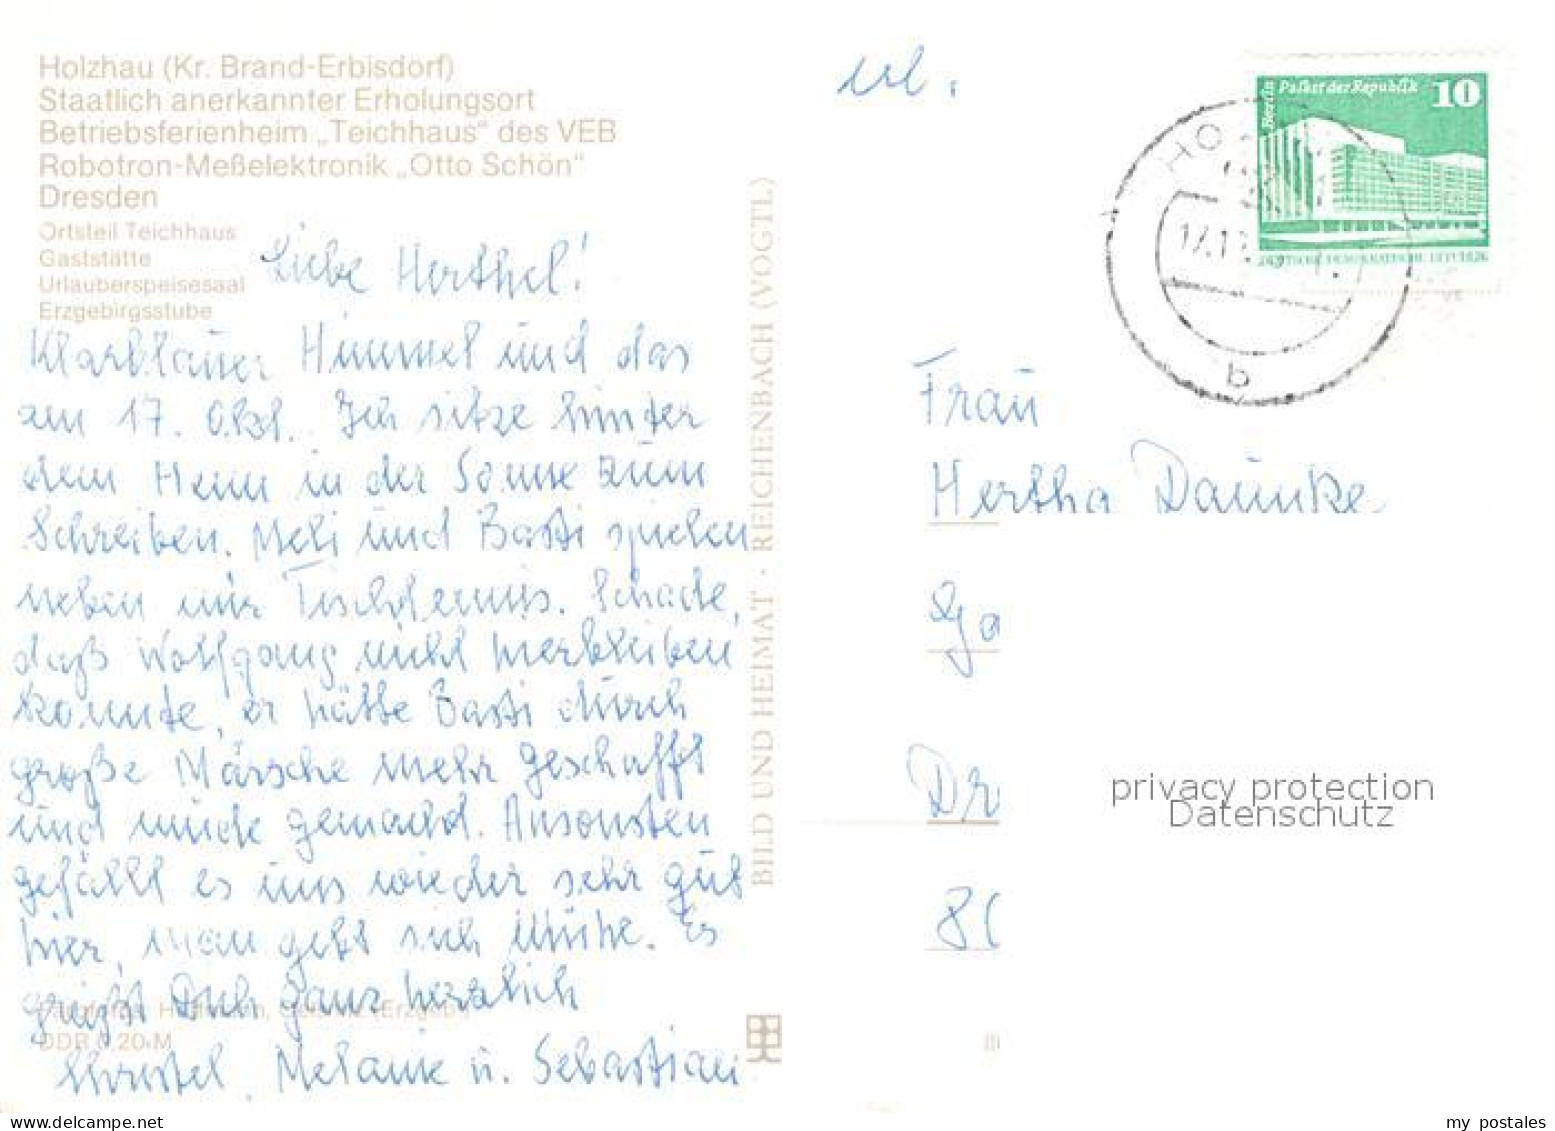 Holzhau (Kr. Brand-Erbisdorf)
Staatlich anerkannter Erholungsort
Betriebsferienheim „Teichhaus" des VEB
Robotron-Meßelektronik „Otto Schön"
Dresden
Ortsteil Teichhaus
Gaststätte
Urlauberspeisesaal
Erzgebirgsstube
Liebe Herthel!
Klarblauer Himmel und das
am 17. Okt. Ich sitze hinter
dem Heim in der Sonne zum
Schreiben. Meli und Basti spielen
neben mir Tischtennis. Schade,
daß Wolfgang nicht hierbleiben
konnte, er hätte Basti durch
große Märsche mehr geschafft
und müde gemacht. Ansonsten
gefällt es uns wieder sehr gut
hier, man gibt sich Mühe. Es
grüßt Dich ganz herzlich
Christel, Melanie u. Sebastian
(Erzgeb.)
DDR 0,20 M
BILD UND HEIMAT · REICHENBACH (VOGTL)
Berlin
Palast der Republik 10
DEUTSCHE DEMOKRATISCHE REPUBLIK
HO
17.1
b
Frau
Hertha Daunke
Dr
privacy protection
Datenschutz
my postales